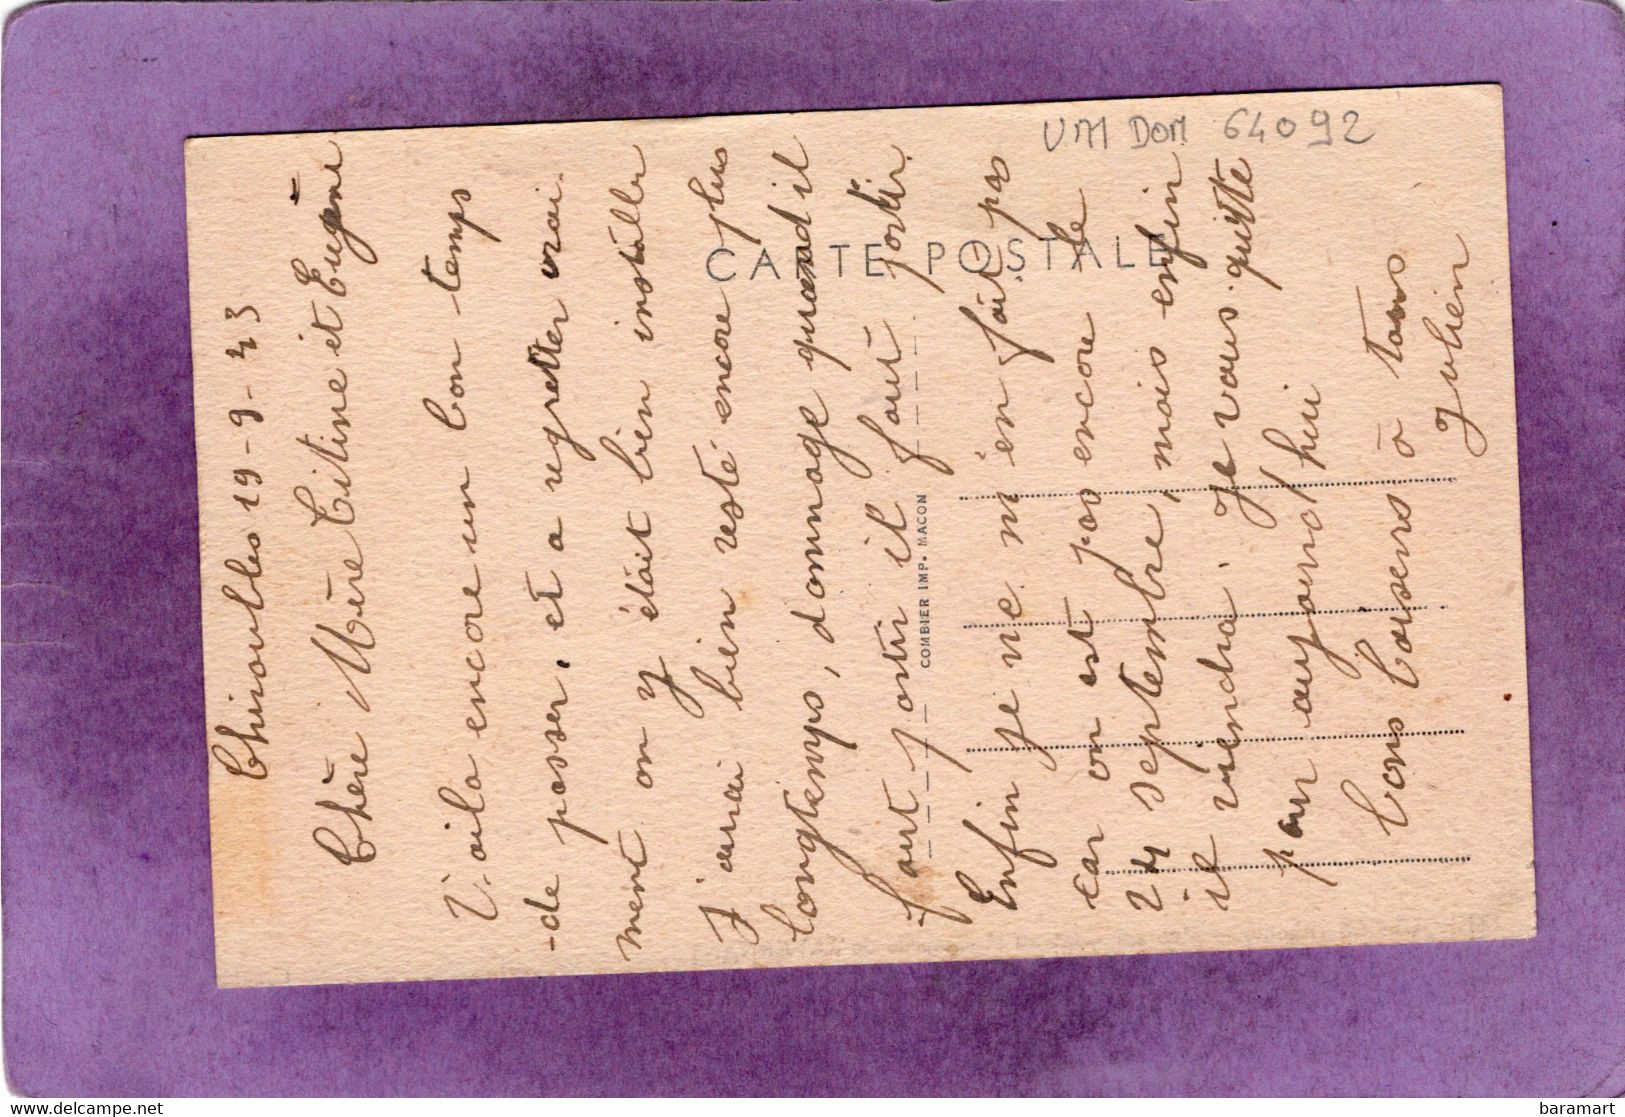 Chiroubles 19-9-43
Chère Mère Titine et Eugène
Voila encore un bon temps
-de passer. et a regretter vrai.
ment on y était bien installer
J'aurai bien resté encore plus
longtemps, dommage quand il
faut partir il faut partir.
Enfin je ne m'en fait pas
car on est pas encore le
24 septembre, mais enfin
il viendra. Je vous quitte
pour aujourd'hui
bons baisers à tous
Julien
CARTE POSTALE
COMBIER IMP. MACON
UM DOM 64092
baramart